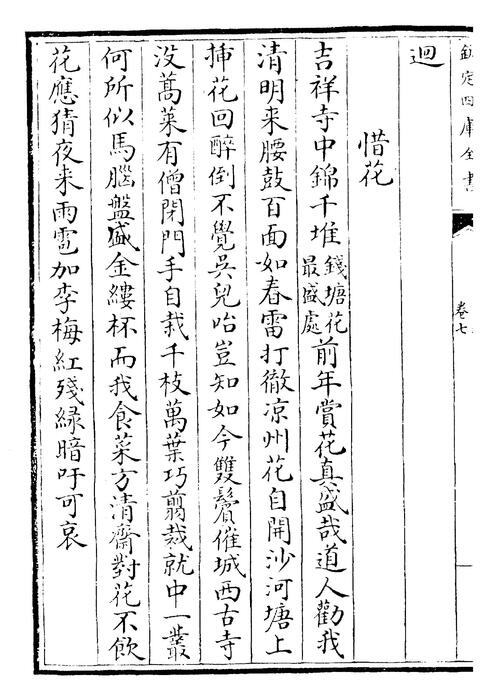 欽定四庫全書
卷七
迴
惜花
吉祥寺中錦千堆錢塘花最盛處前年賞花真盛哉道人勸我
清明来腰鼓百面如春雷打徹凉州花自開沙河塘上
挿花回醉倒不覺吳兒咍豈知如今雙鬢催城西古寺
没蒿萊有僧閉門手自栽千枝萬葉巧翦裁就中一叢
何所似馬腦盤盛金縷杯而我食菜方清齋對花不飲
花應猜夜来雨雹加李梅紅殘緑暗吁可哀